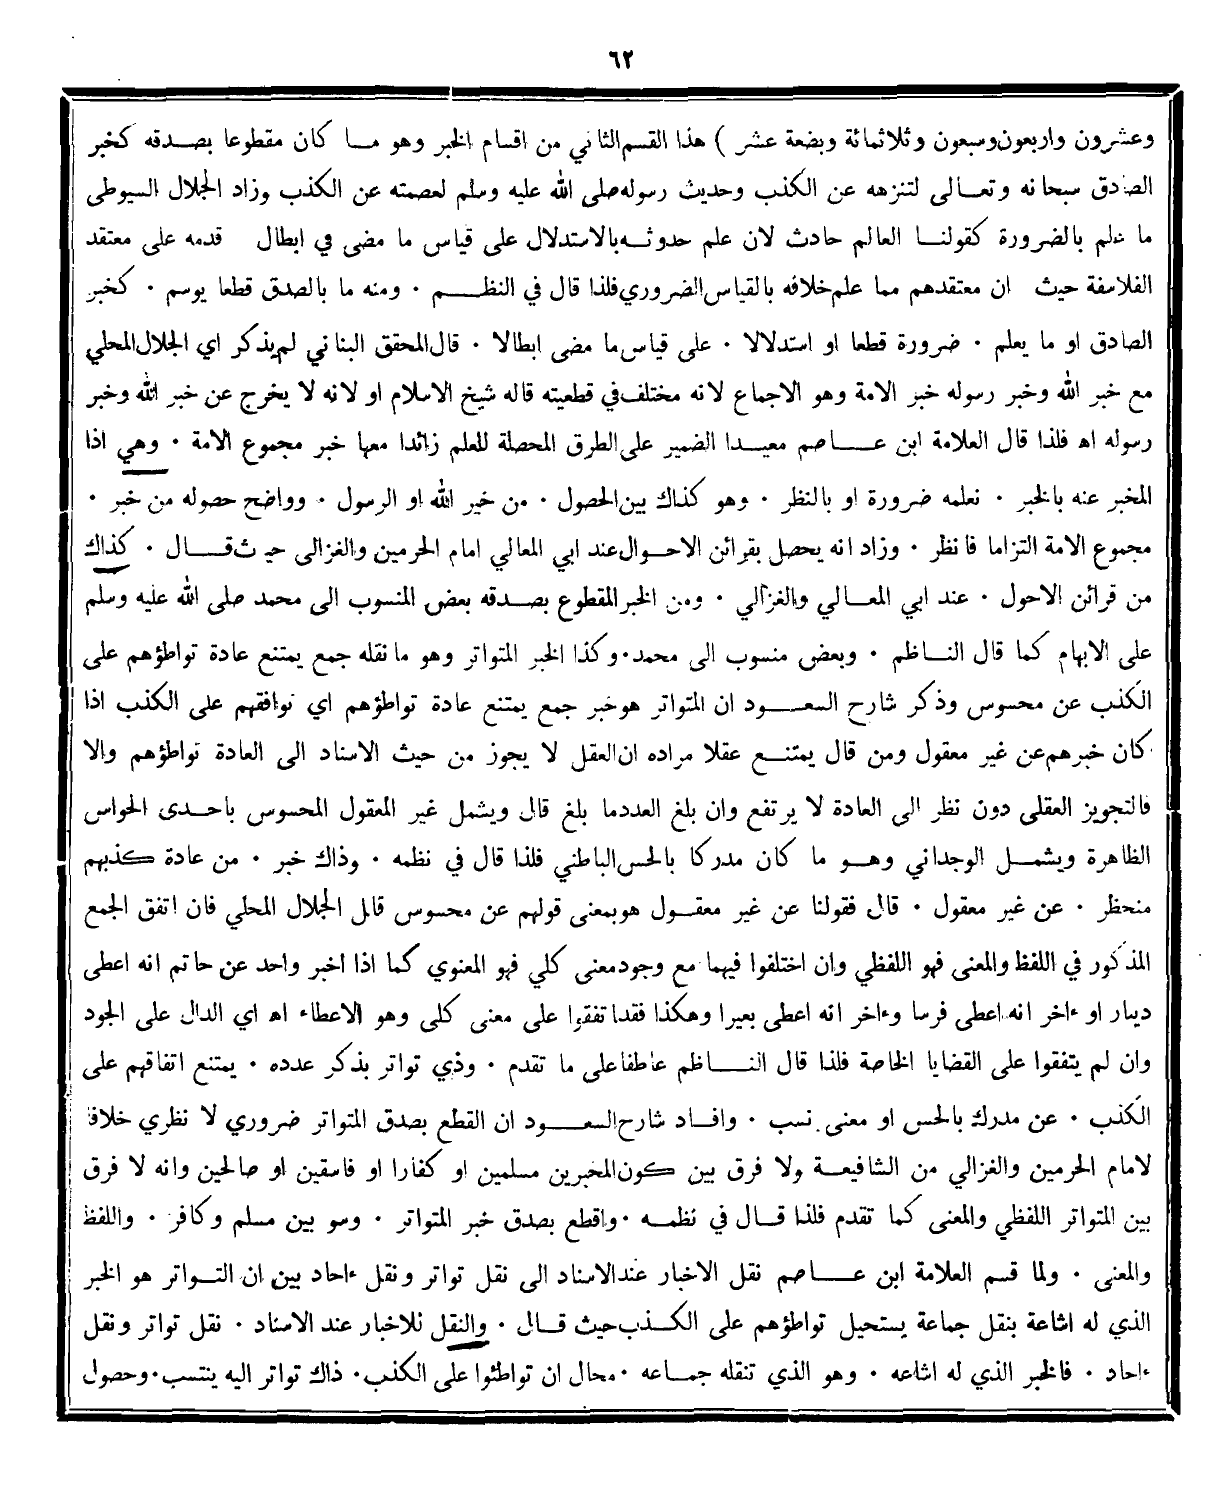 ٦٢
وعشرون واربعون وسبعون وثلاثمائة وبضعة عشر ) هذا القسم الثاني من اقسام الخبر وهو مـا كان مقطوعا بصـدقه كخبر
الصادق سبحانه وتعـالى لتنزهه عن الكذب وحديث رسوله صلى الله عليه وسلم لعصمته عن الكذب وزاد الجلال السيوطي
ما علم بالضرورة كقولنـا العالم حادث لان علم حدوثـه بالاستدلال على قياس ما مضى في ابطال قدمه على معتقد
الفلاسفة حيث ان معتقدهم مما علم خلافه بالقياس الضروري فلذا قال في النظـم ٠ ومنه ما بالصدق قطعا يوسم ٠ كخبر
الصادق او ما يعلم ٠ ضرورة قطعا او استدلالا ٠ على قياس ما مضى ابطالا ٠ قال المحقق البناني لم يذكر اي الجلال المحلي
مع خبر الله وخبر رسوله خبر الامة وهو الاجماع لانه مختلف في قطعيته قاله شيخ الاسلام او لانه لا يخرج عن خبر الله وخبر
رسوله اه فلذا قال العلامة ابن عـاصم معيـدا الضمير على الطرق المحصلة للعلم زائدا معها خبر مجموع الامة ٠ وهي اذا
المخبر عنه بالخبر ٠ نعلمه ضرورة او بالنظر ٠ وهو كذاك بين الحصول ٠ من خير الله او الرسول ٠ وواضح حصوله من خبر ٠
مجموع الامة التزاما فانظر ٠ وزاد انه يحصل بقرائن الاحـوال عند ابي المعالي امام الحرمين والغزالى حيث قـال ٠ كذاك
من قرائن الاحول ٠ عند ابي المعـالي والغزالي ٠ ومن الخبر المقطوع بصـدقه بعض المنسوب الى محمد صلى الله عليه وسلم
على الابهام كما قال النـاظم ٠ وبعض منسوب الى محمد ٠ وكذا الخبر المتواتر وهو ما نقله جمع يمتنع عادة تواطؤهم على
الكذب عن محسوس وذكر شارح السعـود ان المتواتر هو خبر جمع يمتنع عادة تواطؤهم اي توافقهم على الكذب اذا
كان خبرهم عن غير معقول ومن قال يمتنـع عقلا مراده ان العقل لا يجوز من حيث الاسناد الى العادة تواطؤهم والا
فالتجويز العقلى دون نظر الى العادة لا يرتفع وان بلغ العدد ما بلغ قال ويشمل غير المعقول المحسوس باحـدى الحواس
الظاهرة ويشمـل الوجداني وهـو ما كان مدركا بالحس الباطني فلذا قال في نظمه ٠ وذاك خبر ٠ من عادة كذبهم
منحظر ٠ عن غير معقول ٠ قال فقولنا عن غير معقـول هو بمعنى قولهم عن محسوس قال الجلال المحلي فان اتفق الجمع
المذكور في اللفظ والمعنى فهو اللفظي وان اختلفوا فيهما مع وجود معنى كلي فهو المعنوي كما اذا اخبر واحد عن حاتم انه اعطى
دينار او ءاخر انه اعطى فرسا وءاخر انه اعطى بعيرا وهكذا فقد اتفقوا على معنى كلى وهو الاعطاء اه اي الدال على الجود
وان لم يتفقوا على القضايا الخاصة فلذا قال النـاظم عاطفا على ما تقدم ٠ وذي تواتر بذكر عدده ٠ يمتنع اتفاقهم على
الكذب ٠ عن مدرك بالحس او معنى نسب ٠ وافـاد شارح السعـود ان القطع بصدق المتواتر ضروري لا نظري خلافا
لامام الحرمين والغزالي من الشافيعـة ولا فرق بين كون المخبرين مسلمين او كفارا او فاسقين او صالحين وانه لا فرق
بين المتواتر اللفظي والمعنى كما تقدم فلذا قـال في نظمـه ٠ واقطع بصدق خبر المتواتر ٠ وسو بين مسلم وكافر ٠ واللفظ
والمعنى ٠ ولما قسم العلامة ابن عـاصم نقل الاخبار عند الاسناد الى نقل تواتر ونقل ءاحاد بين ان التـواتر هو الخبر
الذي له اشاعة بنقل جماعة يستحيل تواطؤهم على الكـذب حيث قـال ٠ والنقل للاخبار عند الاسناد ٠ نقل تواتر ونقل
ءاحاد ٠ فالخبر الذي له اشاعه ٠ وهو الذي تنقله جمـاعه ٠ محال ان تواطئوا على الكذب ٠ ذاك تواتر اليه ينتسب ٠ وحصول